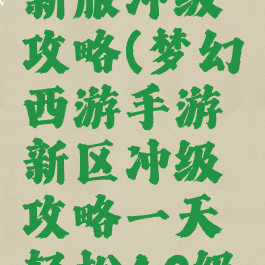 新服冲级
攻略(梦幻
西游手游
新区冲级
攻略一天
轻松40级